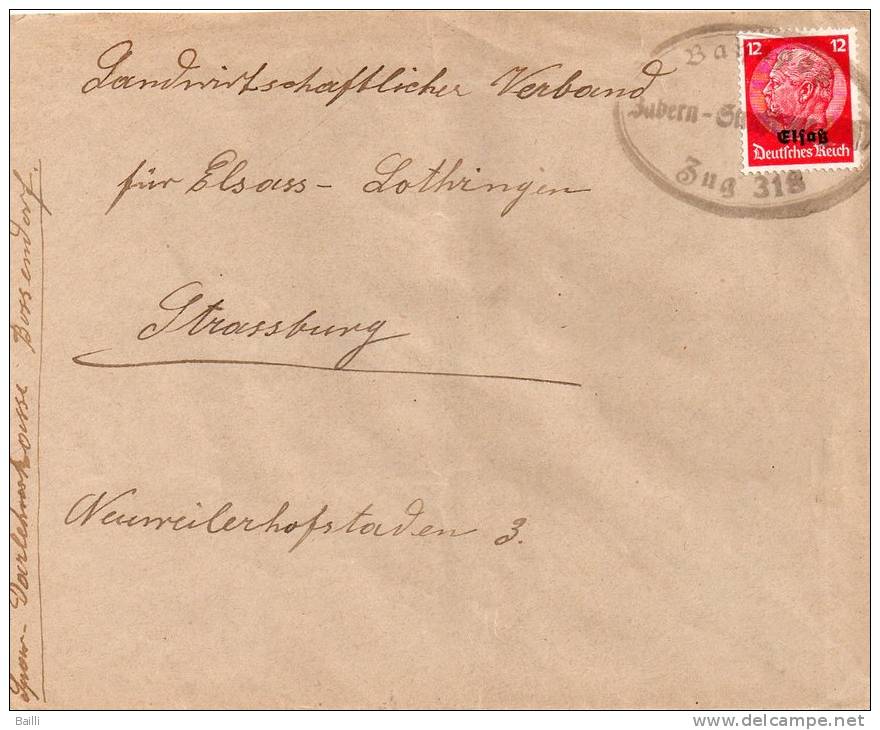 Landwirtschaftlicher Verband
für Elsass - Lothringen
Strassburg
Neuweilerhofstaden 3.
Spar- Darlehnskasse Bossendorf.
Zabern -
Zug 318
12 12
Elsaß
Deutsches Reich
Bailli
www.delcampe.net